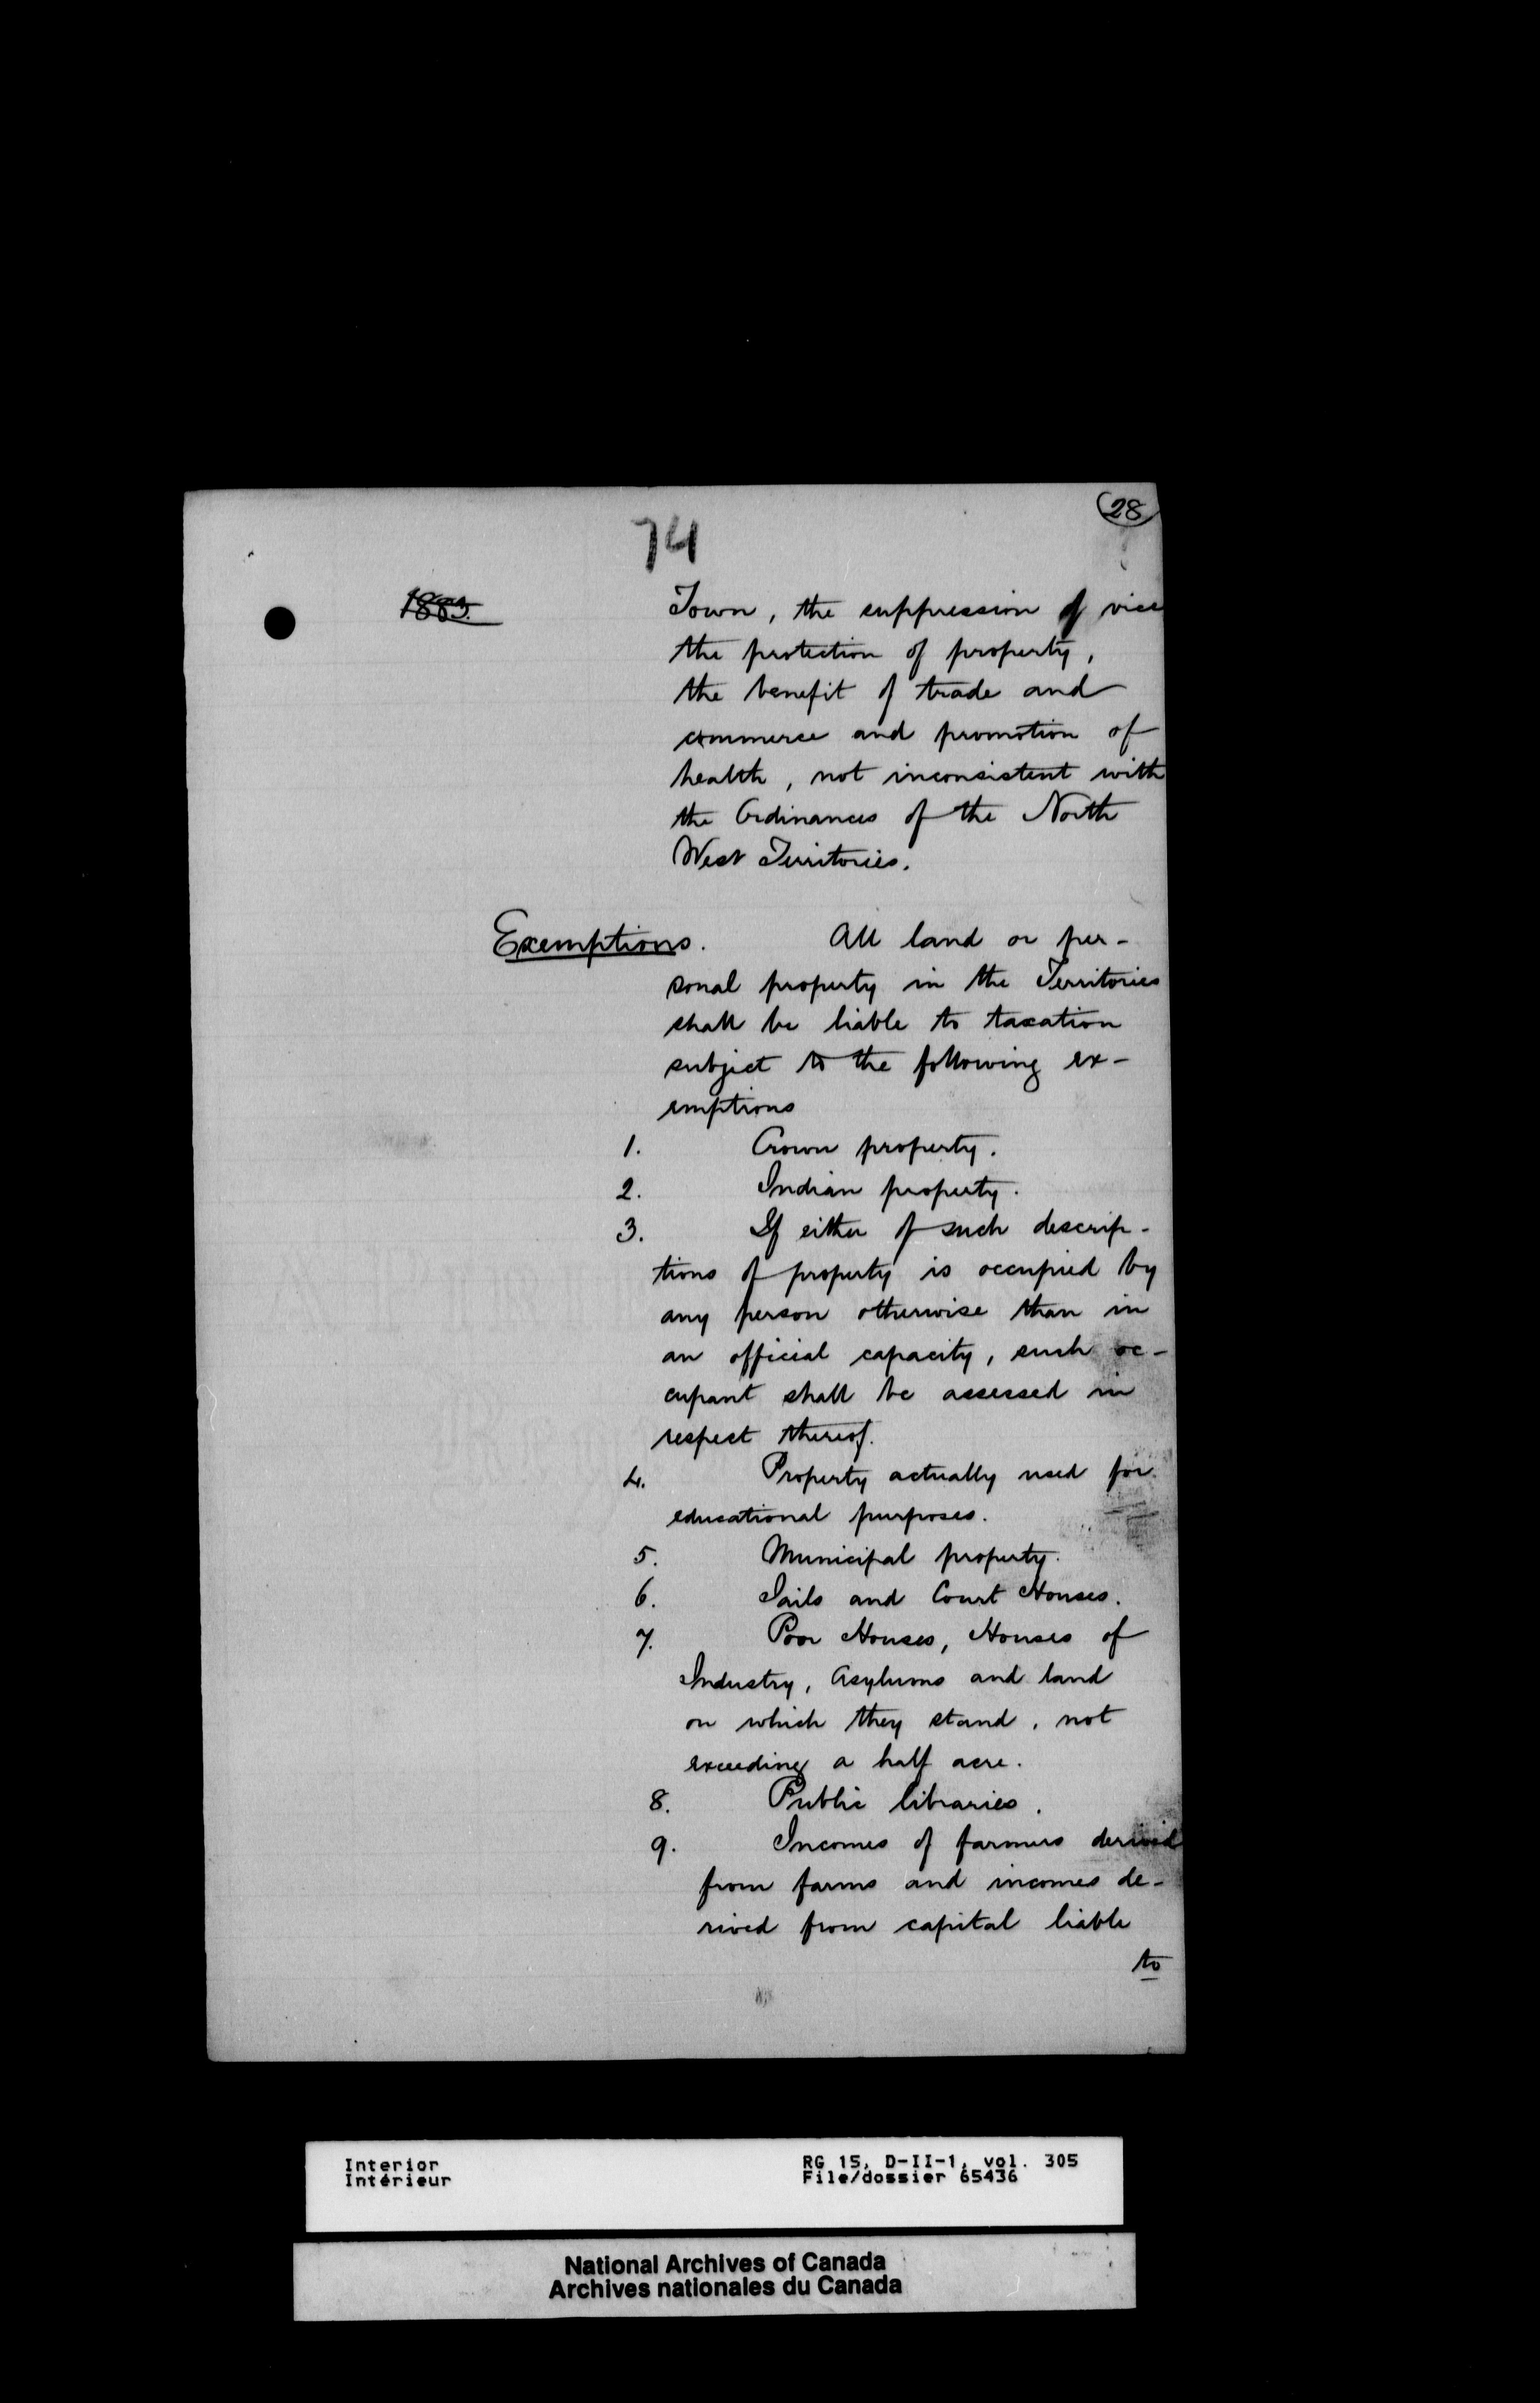 28
74
1883.
Town, the suppression of vice
the protection of property,
the benefit of trade and
commerce and promotion of
health, not inconsistent with
the Ordinances of the North
West Territories.
Exemptions. All land or per-
sonal property in the Territories
shall be liable to taxation
subject to the following ex-
emptions
1. Crown property.
2. Indian property.
3. If either of such descrip-
tions of property is occupied by
any person otherwise than in
an official capacity, such oc-
cupant shall be assessed in
respect thereof.
4. Property actually used for
educational purposes.
5. Municipal property.
6. Jails and Court Houses.
7. Poor Houses, Houses of
Industry, Asylums and land
on which they stand, not
exceeding a half acre.
8. Public libraries.
9. Incomes of farmers derived
from farms and incomes de-
rived from capital liable
to
Interior RG 15, D-II-1, vol. 305
Intérieur File/dossier 65436
National Archives of Canada
Archives nationales du Canada